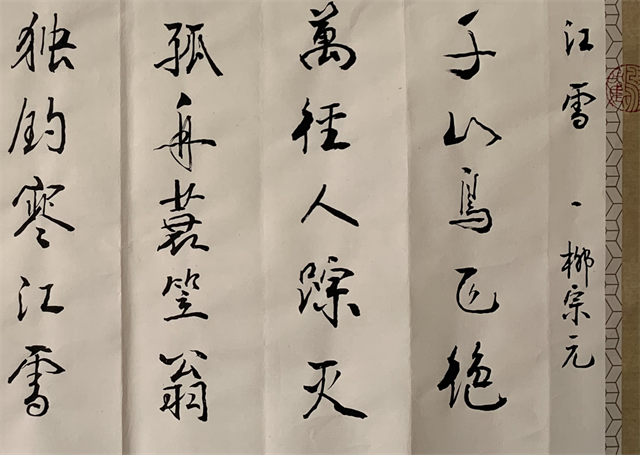 江雪 - 柳宗元
千山鳥飞绝
萬径人踪灭
孤舟蓑笠翁
独钓寒江雪